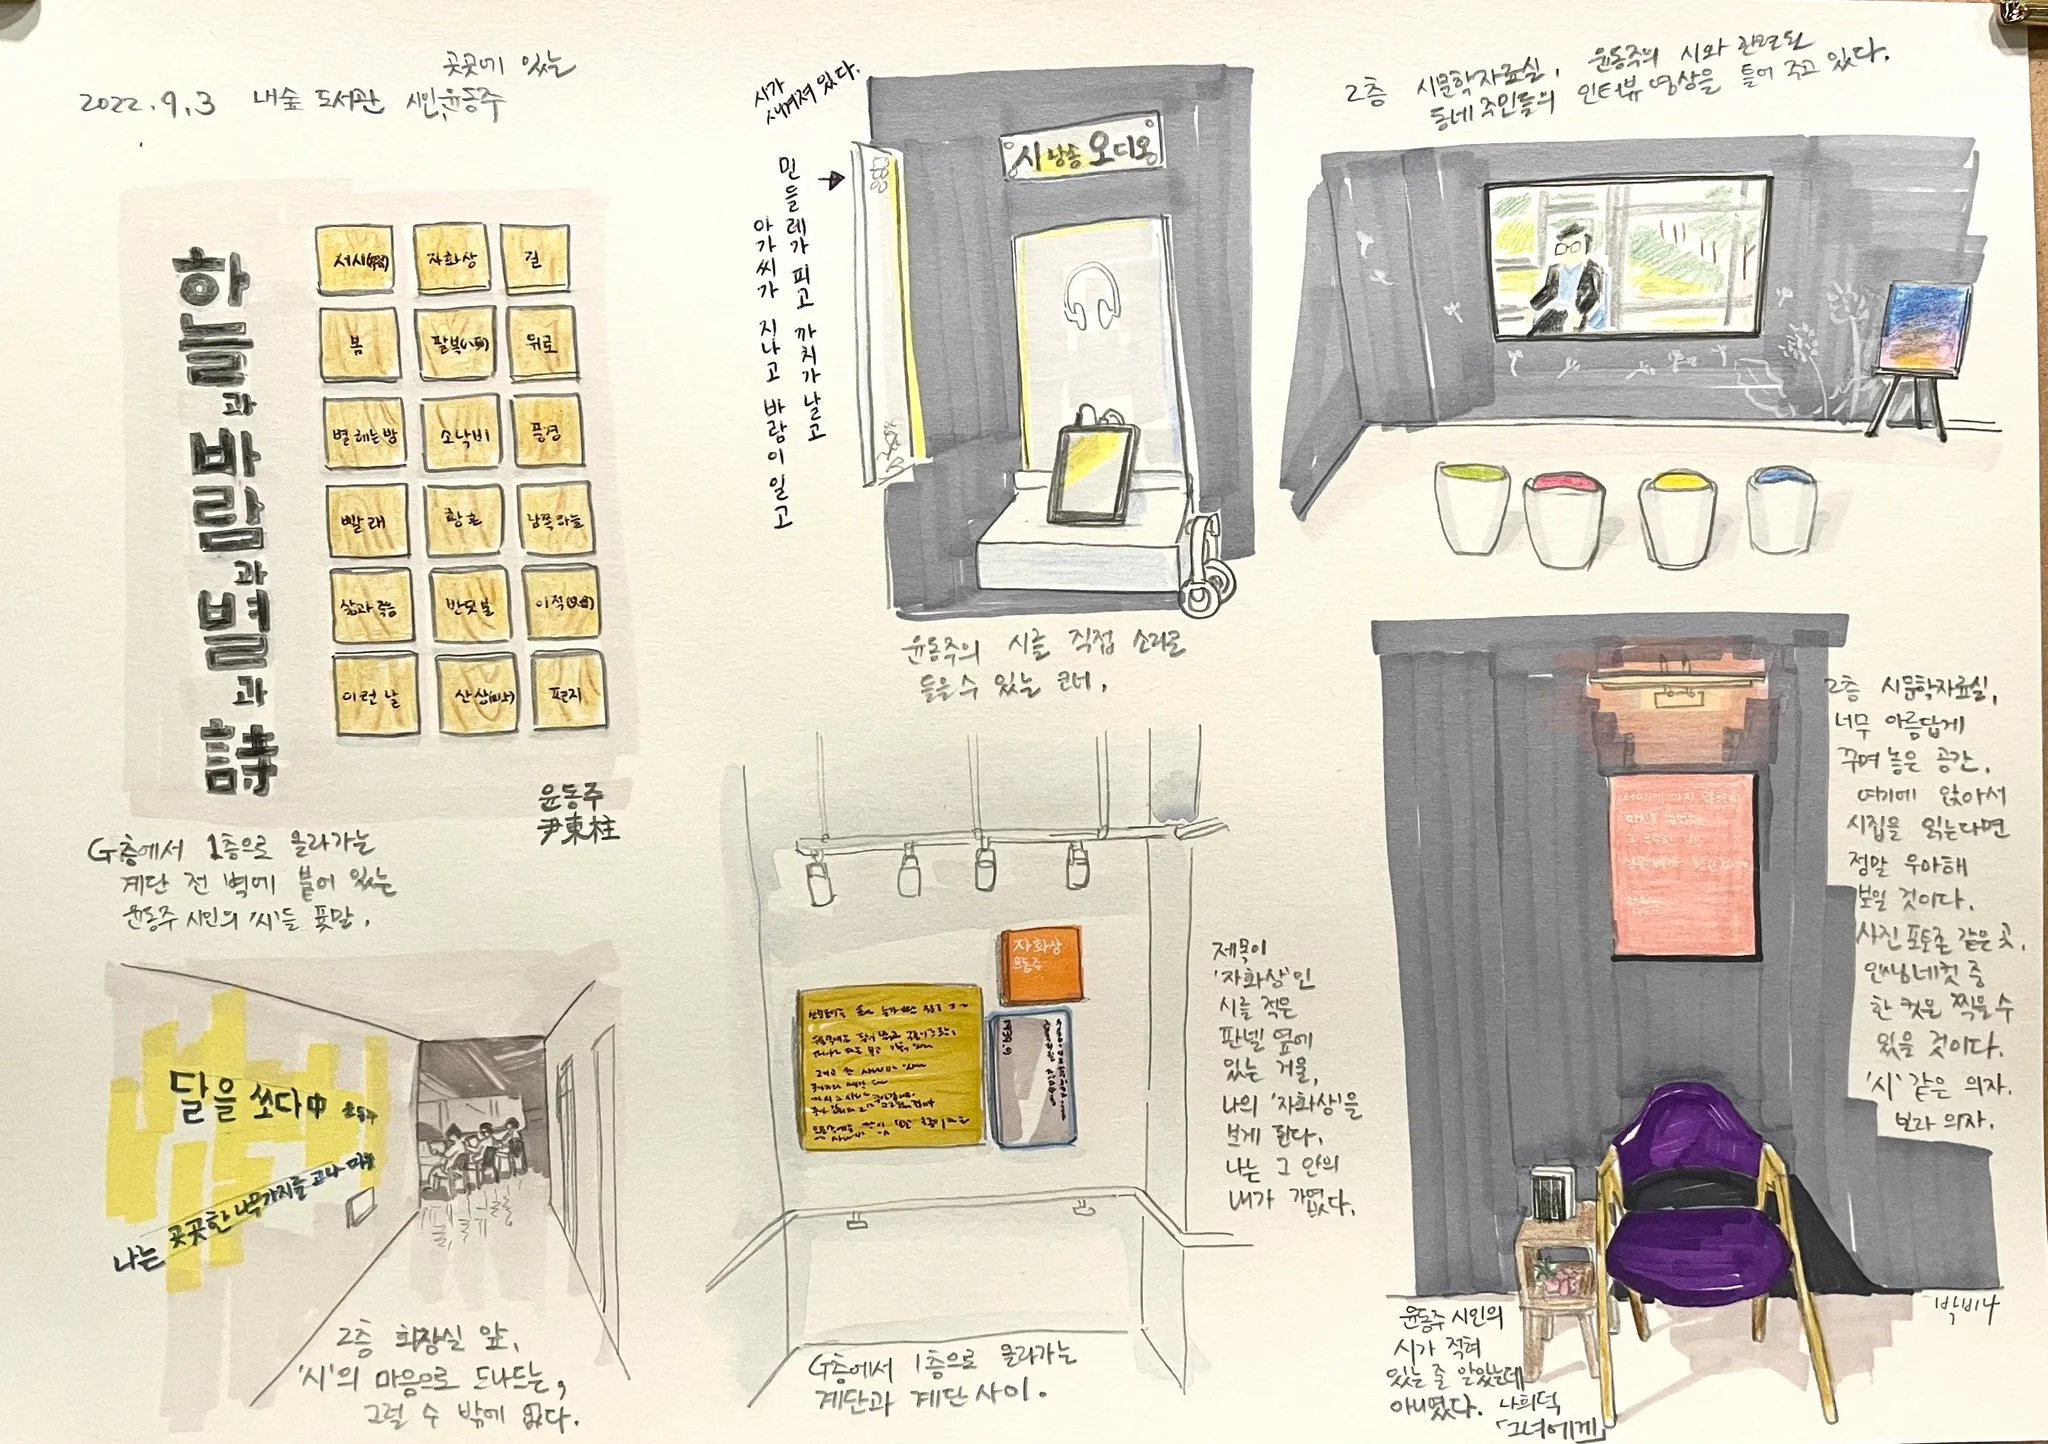 2022.9.3 내숲 도서관 곳곳에 있는 시인, 윤동주
하늘과 바람과 별과 詩
서시(序詩)
자화상
길
봄
팔복(八福)
위로
별 헤는 밤
소낙비
풍경
빨래
황혼
남쪽 하늘
삶과 죽음
반딧불
이적(異蹟)
이런 날
산상(山上)
편지
윤동주
尹東柱
G층에서 1층으로 올라가는
계단 전 벽에 붙어 있는
윤동주 시인의 '시'들 푯말.
시가
새겨져 있다.
민들레가 피고 까치가 날고
아가씨가 지나고 바람이 일고
시 낭송 오디옹
윤동주의 시를 직접 소리로
들을 수 있는 코너.
2층 시문학자료실, 윤동주의 시와 관련된
동네 주민들의 인터뷰 영상을 틀어 주고 있다.
달을 쏘다 中 윤동주
나는 곳곳한 나무가지를 고나
2층 화장실 앞,
'시'의 마음으로 드나드는,
그럴 수 밖에 없다.
자화상
윤동주
1939.9
제목이
'자화상'인
시를 적은
판넬 옆에
있는 거울,
나의 '자화상'을
보게 된다.
나는 그 안의
내가 가엾다.
G층에서 1층으로 올라가는
계단과 계단 사이.
2층 시문학자료실,
너무 아름답게
꾸며 놓은 공간.
여기에 앉아서
시집을 읽는다면
정말 우아해
보일 것이다.
사진 포토존 같은 곳.
인생네컷 중
한 컷을 찍을 수
있을 것이다.
'시' 같은 의자.
보라 의자.
박비나
윤동주 시인의
시가 적혀
있는 줄 알았는데
아니였다. 나희덕
「그녀에게」